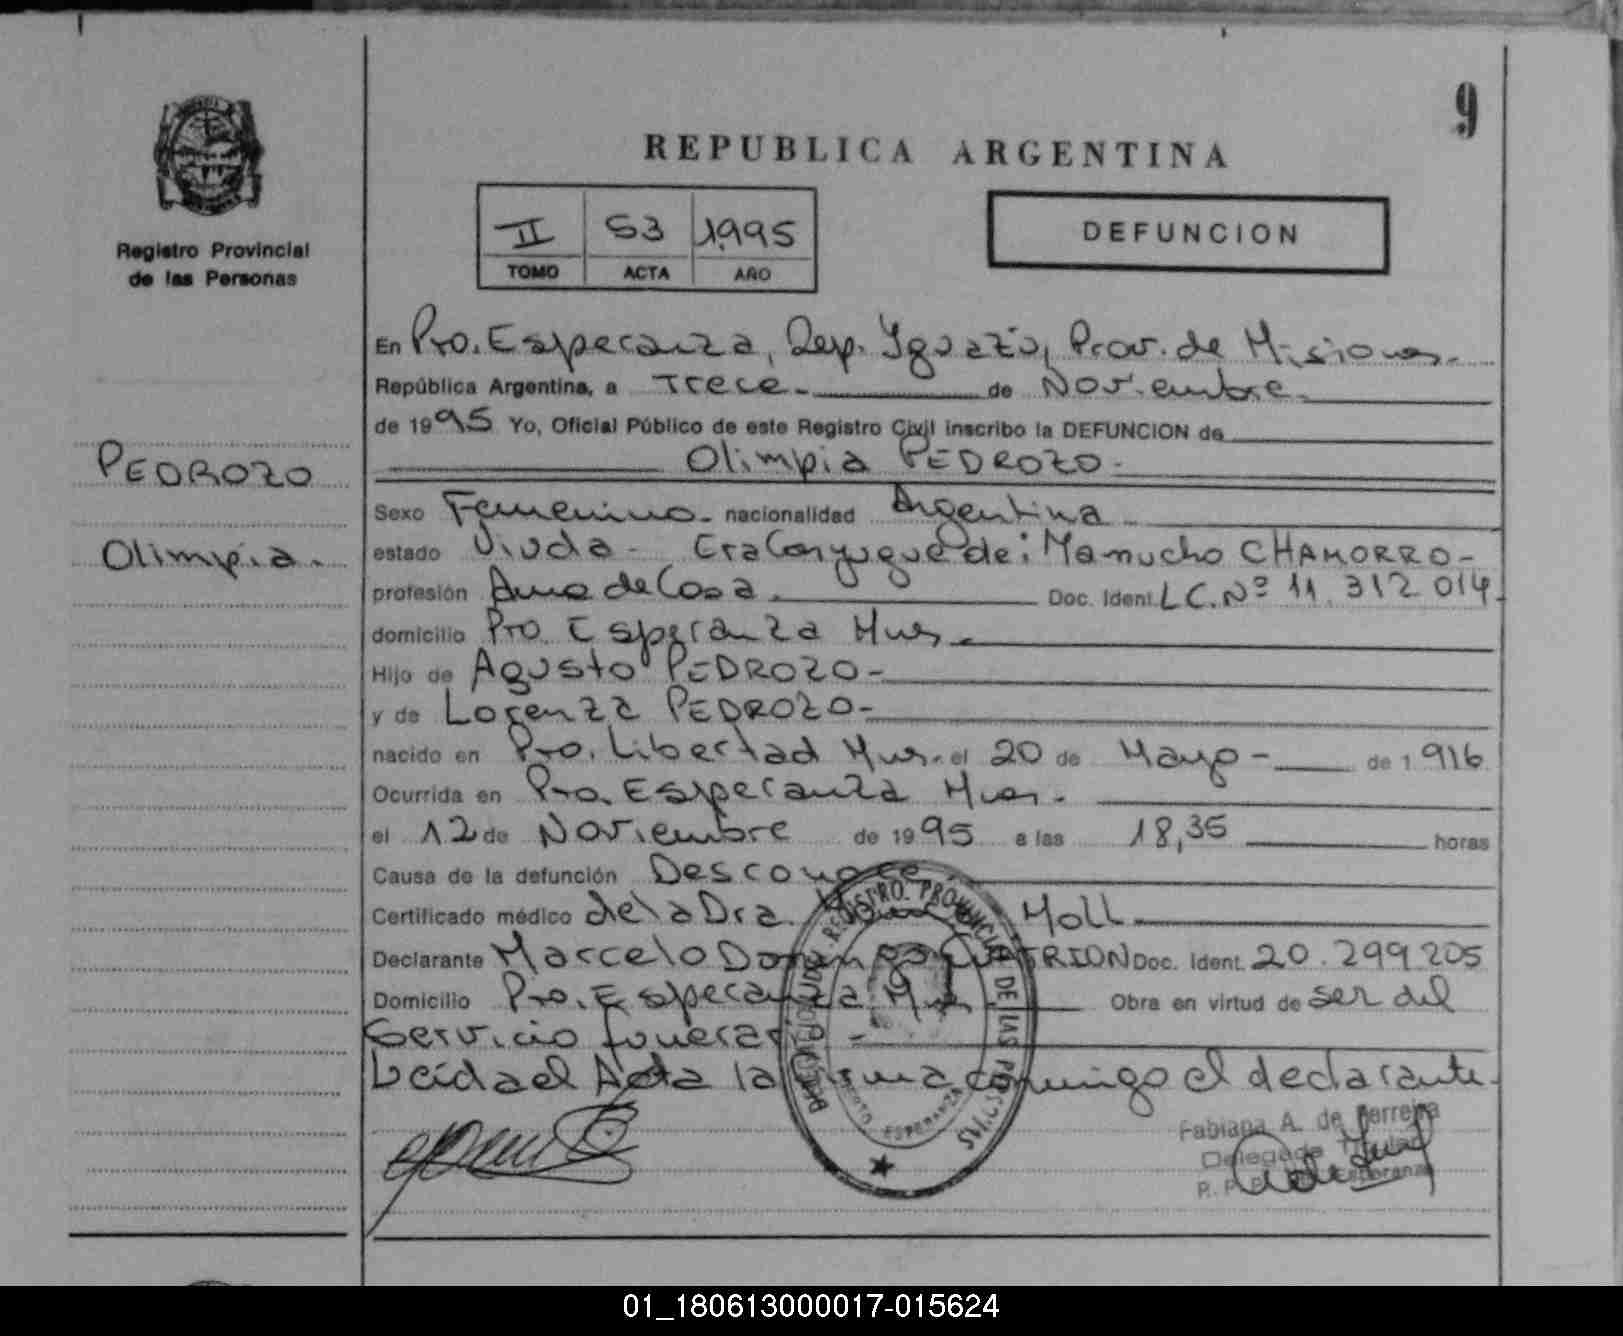 9
REPUBLICA ARGENTINA
Registro Provincial
de las Personas
II 53 1995
TOMO ACTA AÑO
DEFUNCION
En Pto. Esperanza, Dep. Iguazú, Prov. de Misiones.
República Argentina, a Trece. de Noviembre.
de 1995 Yo, Oficial Público de este Registro Civil inscribo la DEFUNCION de
Olimpia PEDROZO.
PEDROZO
Olimpia.
Sexo Femenino. nacionalidad Argentina
estado Viuda - Era Conyugue de: Mamucho CHAMORRO-
profesión Ama de Casa. Doc. Ident. L.C. Nº 11.312.014
domicilio Pto. Esperanza Mnes.
Hijo de Agusto PEDROZO-
y de Lorenza PEDROZO-
nacido en Pto. Libertad Mnes. el 20 de Mayo - de 1.916
Ocurrida en Pto. Esperanza Mnes.
el 12 de Noviembre de 1995 a las 18,35 horas
Causa de la defunción Desconoce
Certificado médico de la Dra. Moll
Declarante Marcelo Domingo Doc. Ident. 20.299.205
Domicilio Pto. Esperanza Mnes Obra en virtud de ser del
Servicio funerario -
Leida el Acta la firma conmigo el declarante.
REGISTRO PROVINCIAL DE LAS PERSONAS
PUERTO ESPERANZA
Fabiana A. de Ferreira
Delegada Titular
R. P. P. Esperanza
01_180613000017-015624